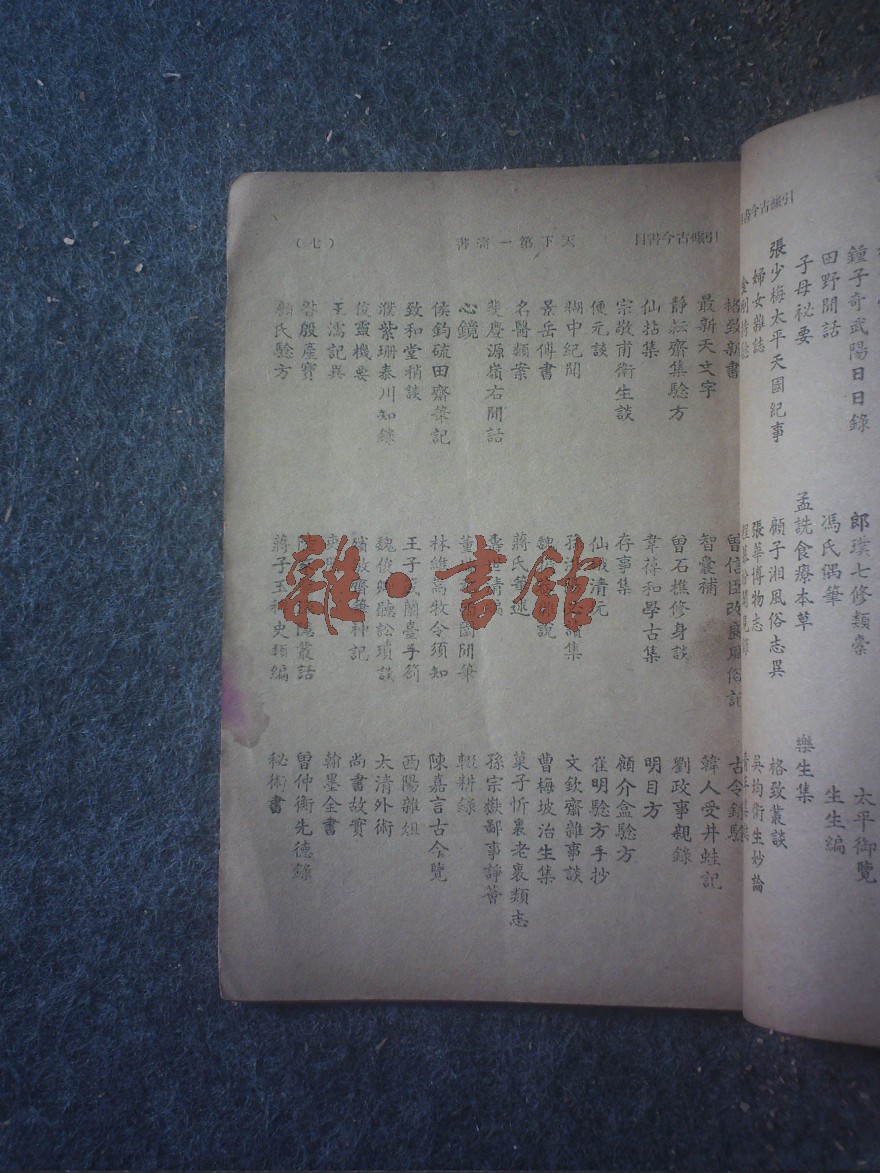 引據古今書目
鍾子奇武陽日日錄
郎瑛七修類稾
太平御覽
田野閒話
馮氏偶筆
生生編
子母祕要
孟詵食療本草
樂生集
張少梅太平天國紀事
顧子湘風俗志異
格致叢談
婦女雜誌
張華博物志
吳均衛生妙論
引據古今書目
天下第一奇書
(七)
格致新書
曾信臣改良風俗記
古今錄驗
最新天文字
智囊補
韓人受井蛙記
靜耘齋集驗方
曾石樵修身談
劉政事親錄
仙拈集
韋葆和學古集
明目方
宗敬甫衛生談
存事集
顧介盦驗方
便元談
仙城清元
崔明驗方手抄
糊中紀聞
文欽齋雜事談
景岳傳書
曹梅坡治生集
名醫類案
菓子忻裏老裏類志
裴慶源嶺右閒話
壽世清編
孫宗嶽鄙事諍薈
心鏡
輟耕錄
侯鈞硫田齋筆記
林維喬牧令須知
陳嘉言古今覽
致和堂稍談
酉陽雜俎
濮紫珊泰川知錄
太清外術
俊靈機要
尚書故實
王濡記異
翰墨全書
昝殷產寶
曾仲衡先德錄
顏氏驗方
秘術書
雜·書館